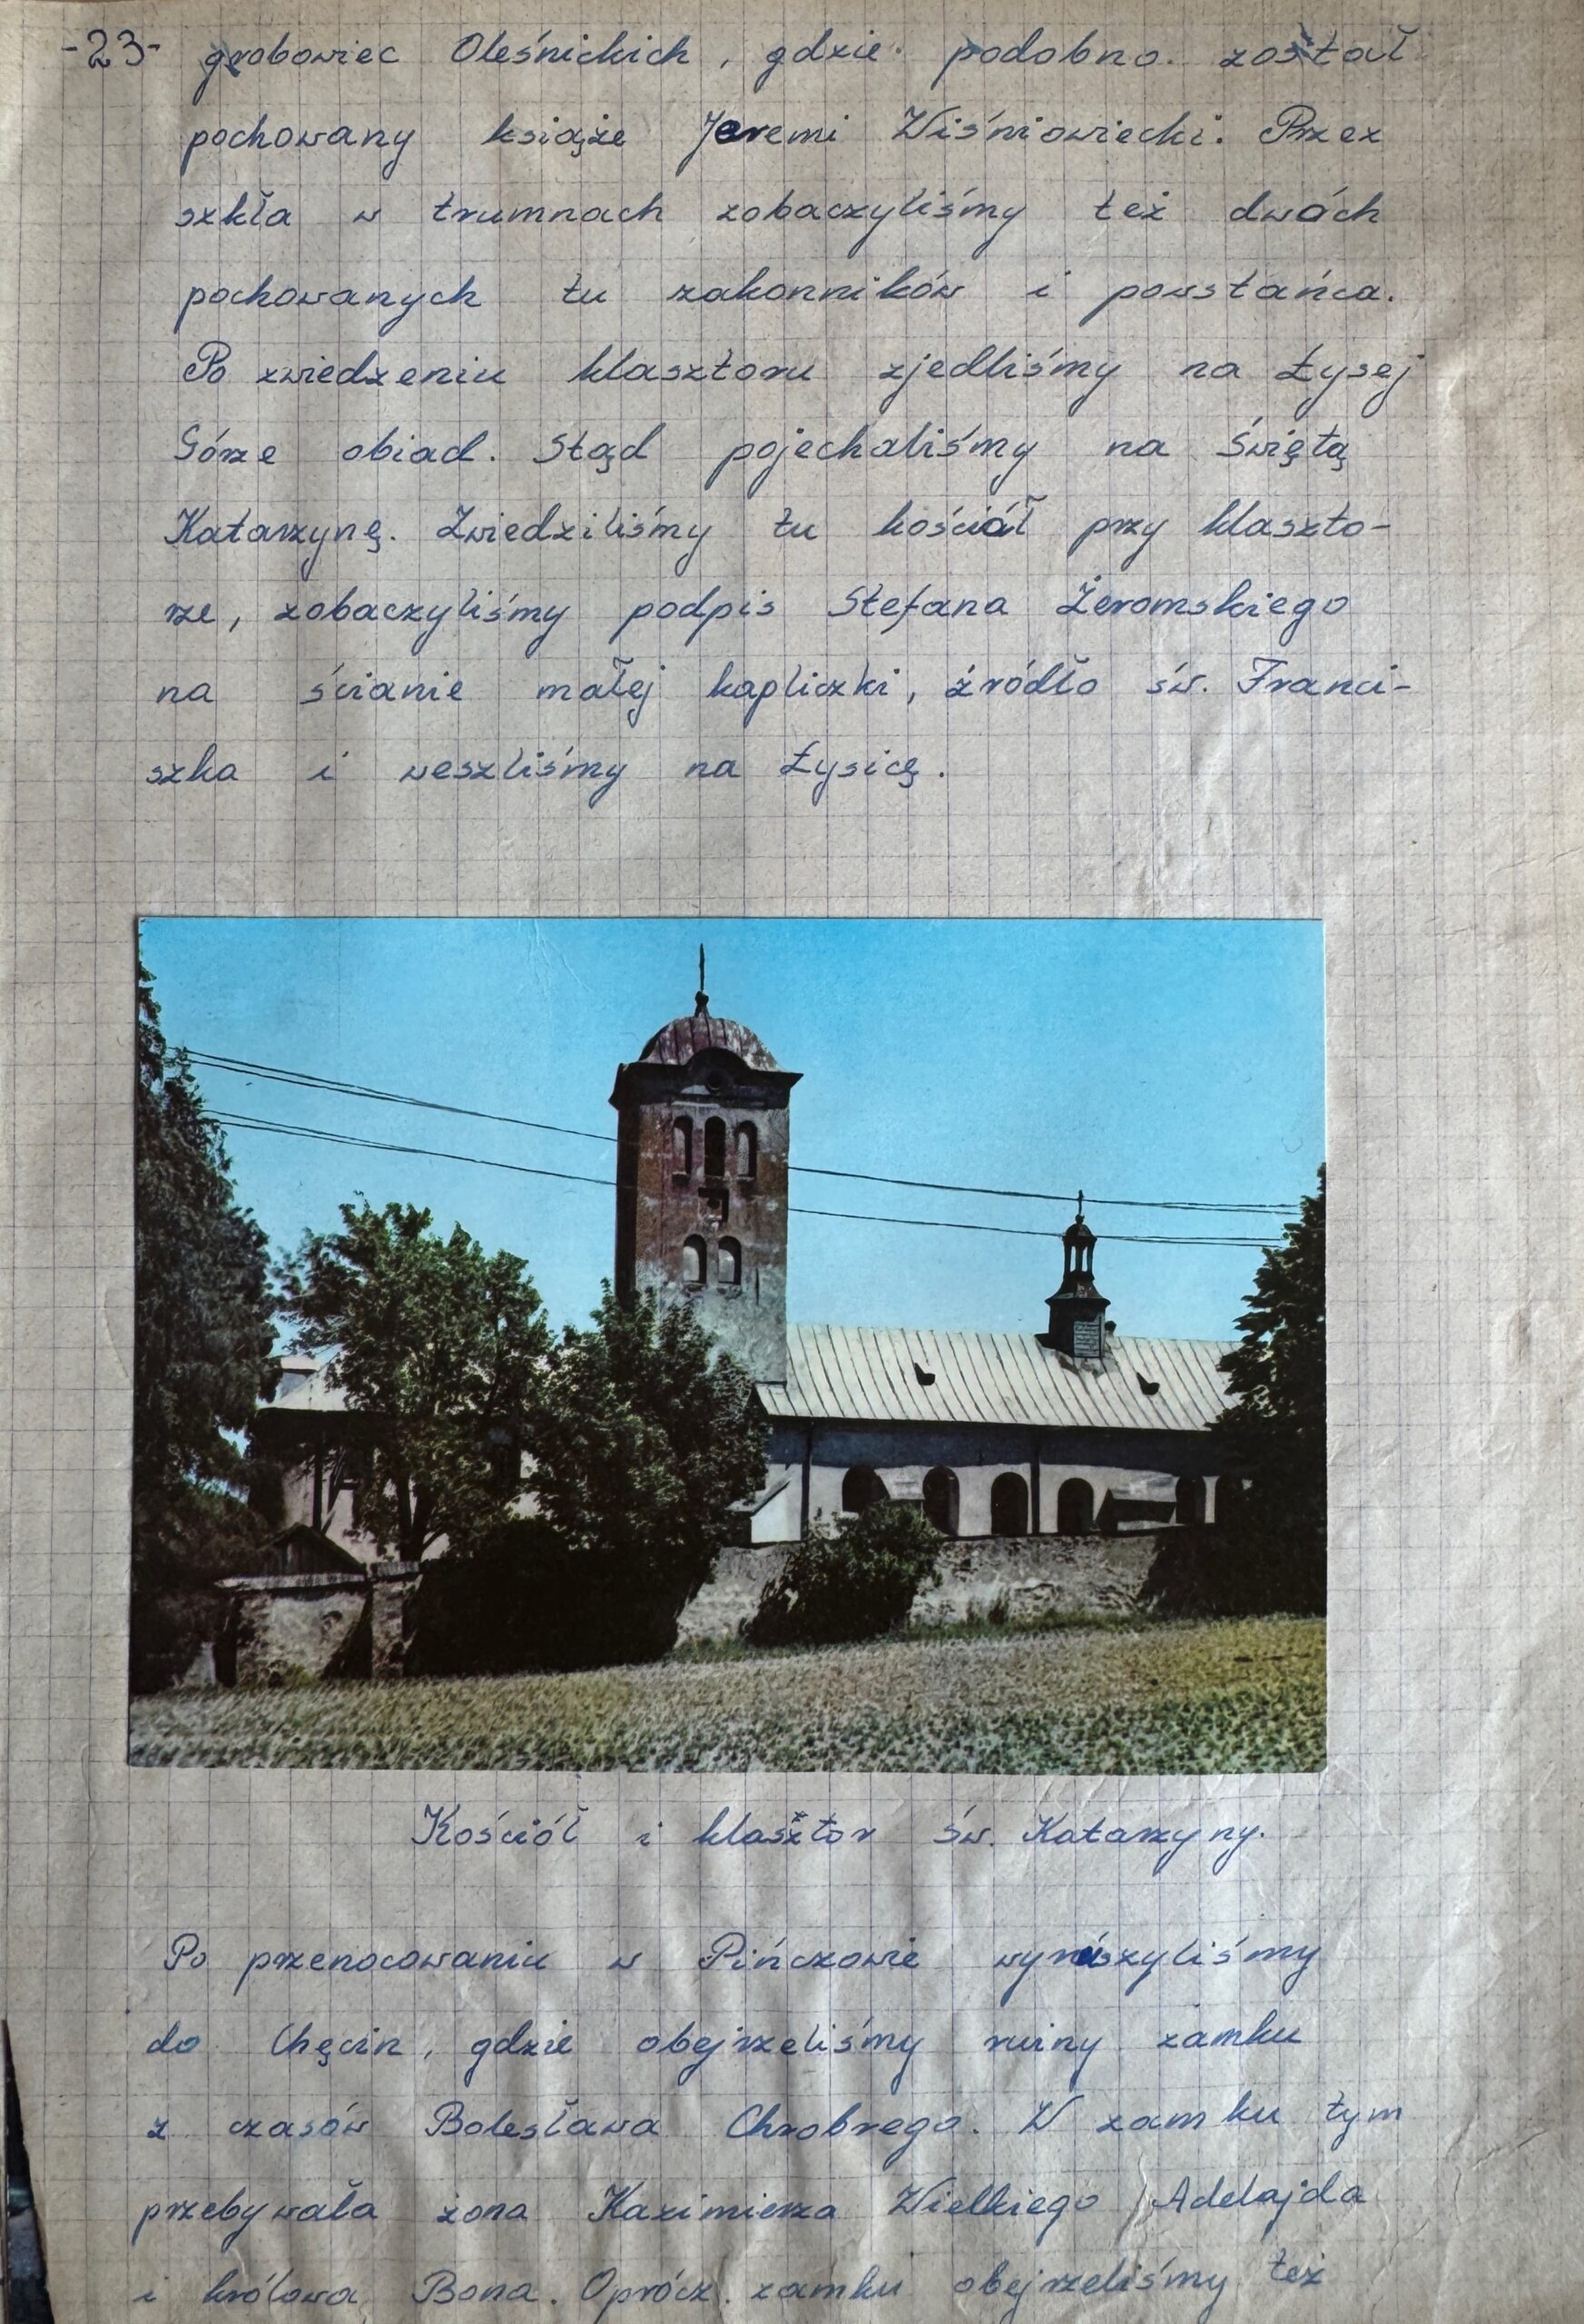 -23- grobowiec Oleśnickich, gdzie podobno został
pochowany książe Jeremi Wiśniowiecki. Przez
szkła w trumnach zobaczyliśmy też dwóch
pochowanych tu zakonników i powstańca.
Po zwiedzeniu klasztoru zjedliśmy na Łysej
Górze obiad. Stąd pojechaliśmy na Świętą
Katarzynę. Zwiedziliśmy tu kościół przy klaszto-
rze, zobaczyliśmy podpis Stefana Żeromskiego
na ścianie małej kapliczki, źródło św. Franci-
szka i weszliśmy na Łysicę.
Kościół i klasztor św. Katarzyny.
Po przenocowaniu w Pińczowie wyruszyliśmy
do Chęcin, gdzie obejrzeliśmy ruiny zamku
z czasów Bolesława Chrobrego. W zamku tym
przebywała żona Kazimierza Wielkiego Adelajda
i królowa Bona. Oprócz zamku obejrzeliśmy też